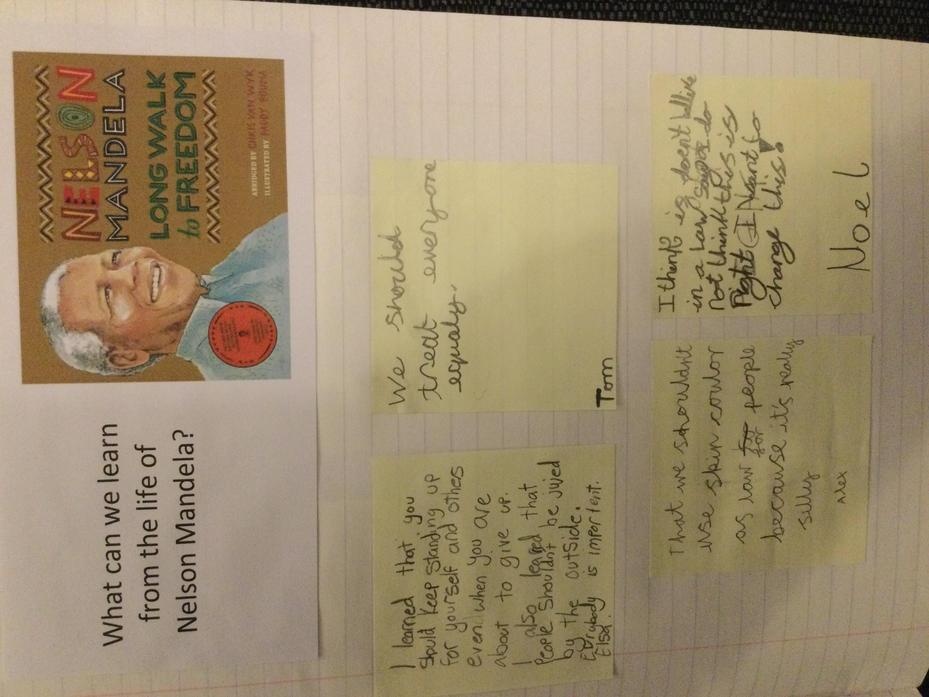 What can we learn
from the life of
Nelson Mandela?
NELSON
MANDELA
LONG WALK
to FREEDOM
ABRIDGED BY CHRIS VAN WYK
ILLUSTRATED BY PADDY BOUMA
I learned that you
Should keep standing up
for yourself and others
even when you are
about to give up.
I also learned that
People shouldn't be jujed
by the outside.
Evrybody is importent.
Elsa.
We should
treat everyone
equaly.
Tom
That we shouldn't
use skin coulor
as law for people
because it's really
silly
Alex
I think is doesn't belive
in a law do
not think this is
Right I want to
change this!
Noel